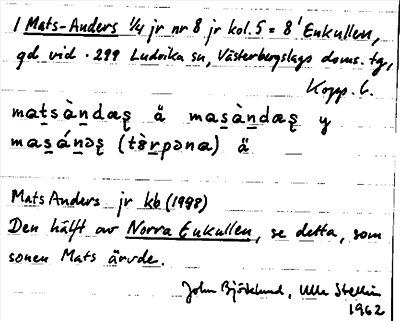 / Mats-Anders 1/4 jr nr 8 jr kol. 5 = 8¹ Enkullen,
gd vid . 299 Ludvika sn, Västerbergslags doms. tg,
Kopp. l.
mat̲s̲àn̲dæs̨ ä mas̲àn̲dæs̨ y
mas̲án̲əs̨ (tə̀r̲pəna) ä
Mats Anders jr kb (1998)
Den hälft av Norra Enkullen, se detta, som
sonen Mats ärvde.
John Björklund, Ulla Stellin
1962